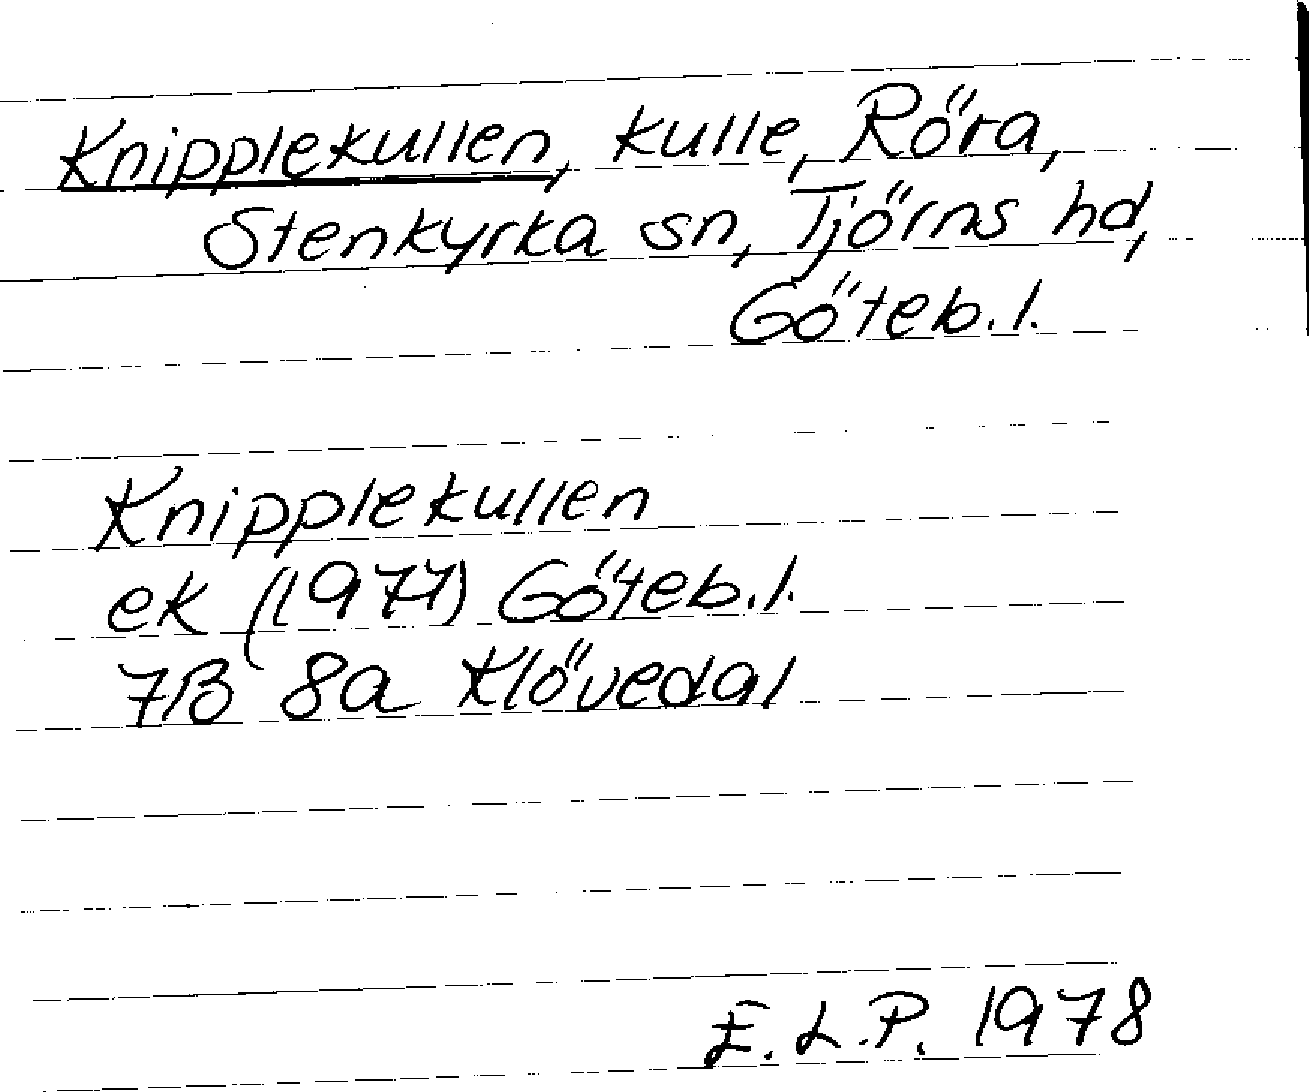 Knipplekullen, kulle, Röra,
Stenkyrka sn, Tjörns hd,
Göteb. l.
Knipplekullen
ek (1977) Göteb. l.
7B 8a Klövedal
E. L. P. 1978